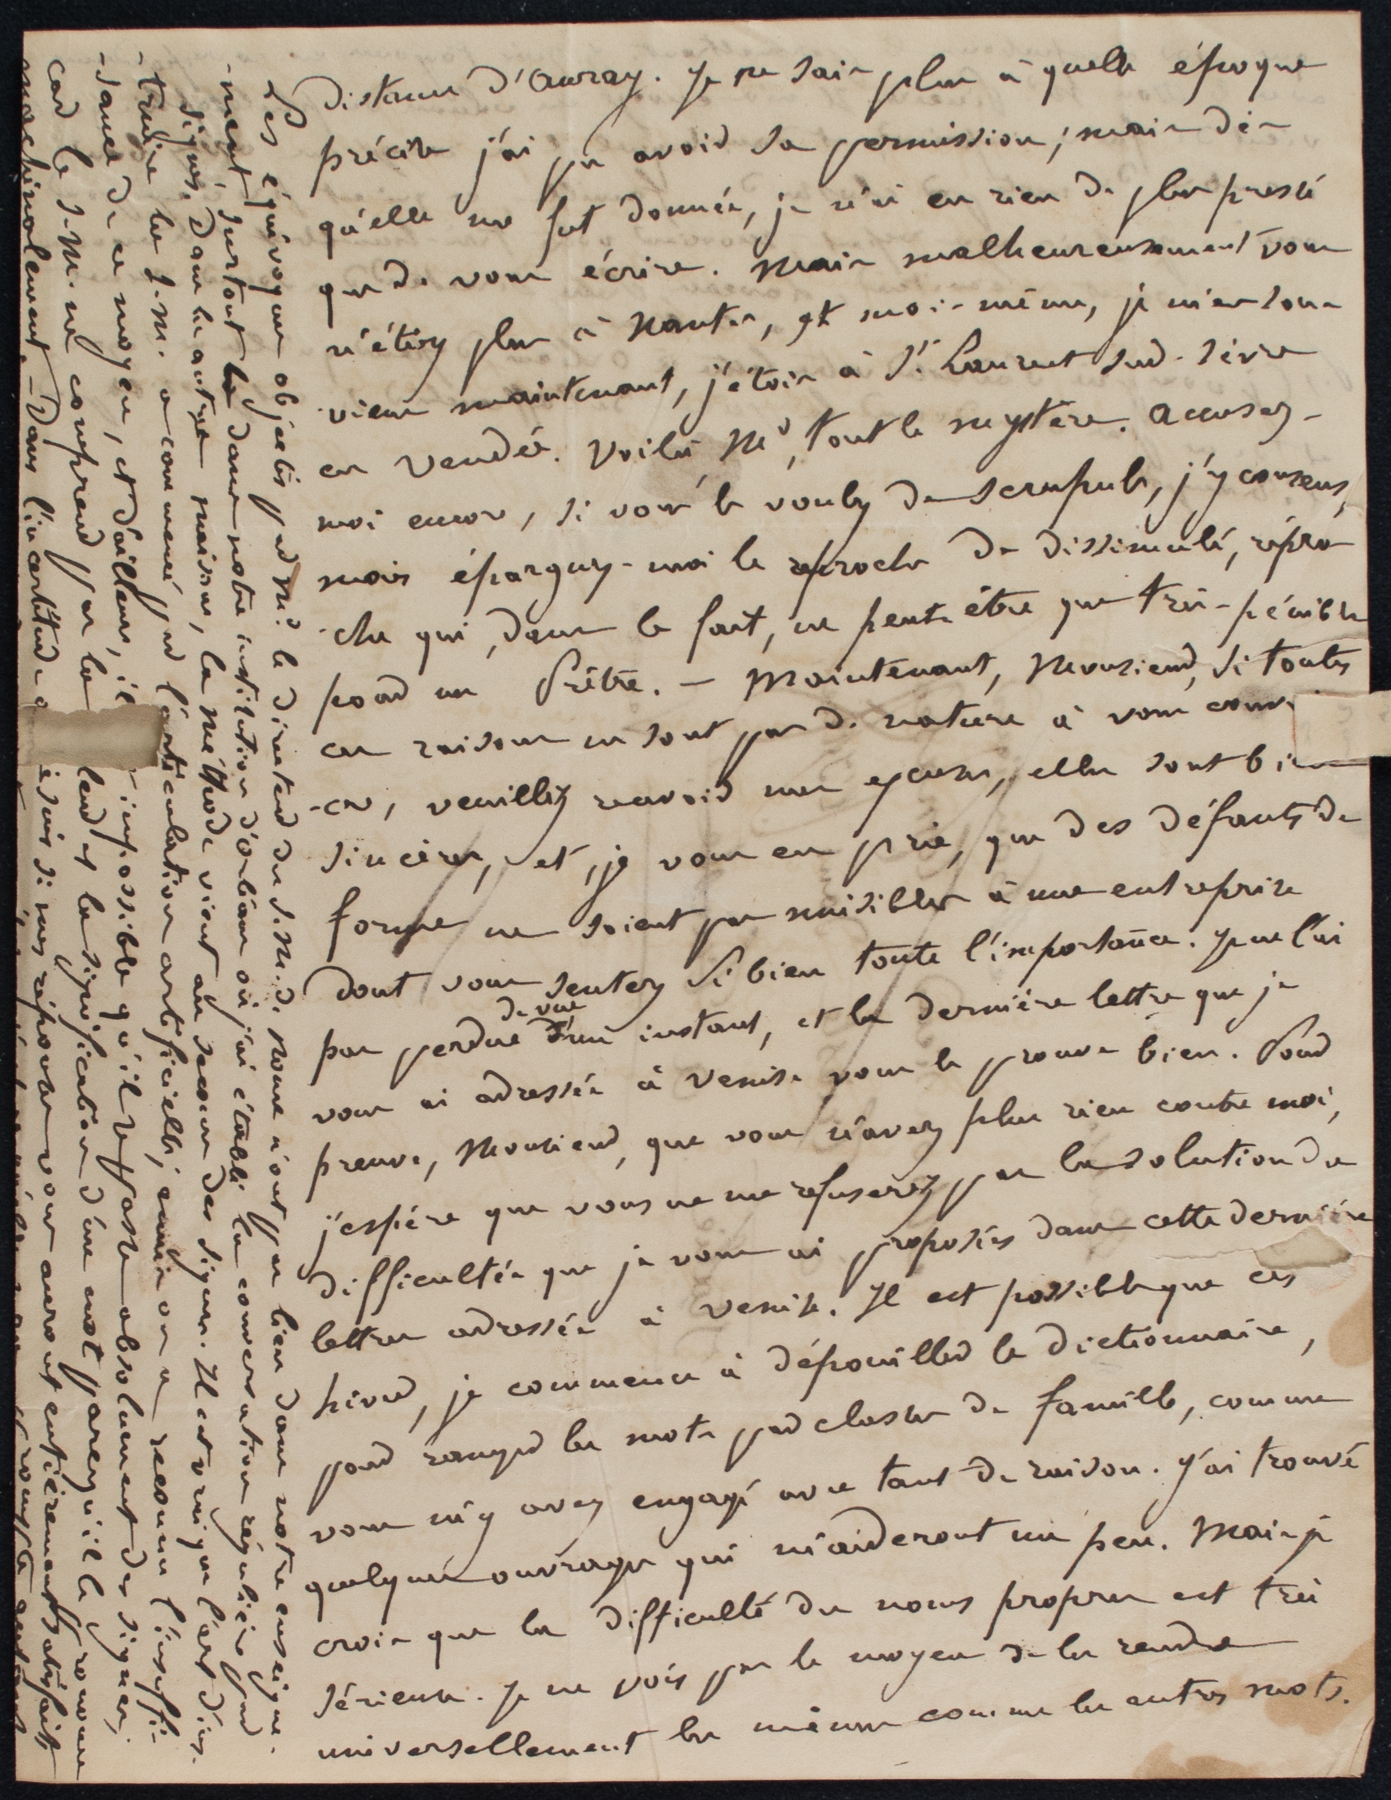 distance d'Auray. Je ne sais plus à quelle époque
précise j'ai pu avoir sa permission; mais dès
qu'elle me fut donnée, je n'ai eu rien de plus pressé
que de vous écrire. Mais malheureusement vous
n'étiez plus à Nantes, et moi-même, je m'en sou-
viens maintenant, j'étois à St. Laurent sur-Sèvre
en Vendée. Voilà, Mr, tout le mystère. Accusez-
moi encore, si vous le voulez de scrupule, j'y consens,
mais épargnez-moi le reproche de dissimulé, repro
-che qui, dans le fait, ne peut être que très-pénible
pour un Prêtre. — Maintenant, Monsieur, si toutes
ces raisons ne sont pas de nature à vous conv
-cre, veuillez recevoir mes excuses, elles sont bien
sincères, et, je vous en prie, que des défauts de
forme ne soient pas nuisibles à une entreprise
dont vous sentez si bien toute l'importance. Je ne l'ai
pas perdue de vue d'un instant, et la dernière lettre que je
vous ai adressée à Venise vous le prouve bien. Pour
preuve, Monsieur, que vous n'avez plus rien contre moi,
j'espère que vous ne me refuserez pas la solution des
difficultés que je vous ai proposées dans cette dernière
lettre adressée à Venise. Il est possible que cet
hiver, je commence à dépouiller le dictionnaire,
pour ranger les mots par classes de famille, comme
vous m'y avez engagé avec tant de raison. J'ai trouvé
quelques ouvrages qui m'aideront un peu. Mais je
crois que la difficulté des noms propres est très
sérieuse. Je ne vois pas le moyen de les rendre
universellement les mêmes comme les autres mots.
Les équivoques objectés par Mr. le directeur des S.M. de Rome n'ont pas lieu dans notre enseigne-
-ment, surtout dans notre institution d'Orléans où j'ai établi la conversation régulière par
signes. Dans les autres maisons, la méthode vient au secours des signes. Il est vrai que l'art d'ins-
-truire les S-M. a commencé par l'articulation artificielle, mais on a reconnu l'insuffi-
-sance de ce moyen, et d'ailleurs, il impossible qu'il se passe absolument des signes,
car le S-M. ne comprend pas la la signification d'un mot parcequ'il le prononce
machinalement. — Dans l'incertitude si mes réponses vous auront entièrement satisfait